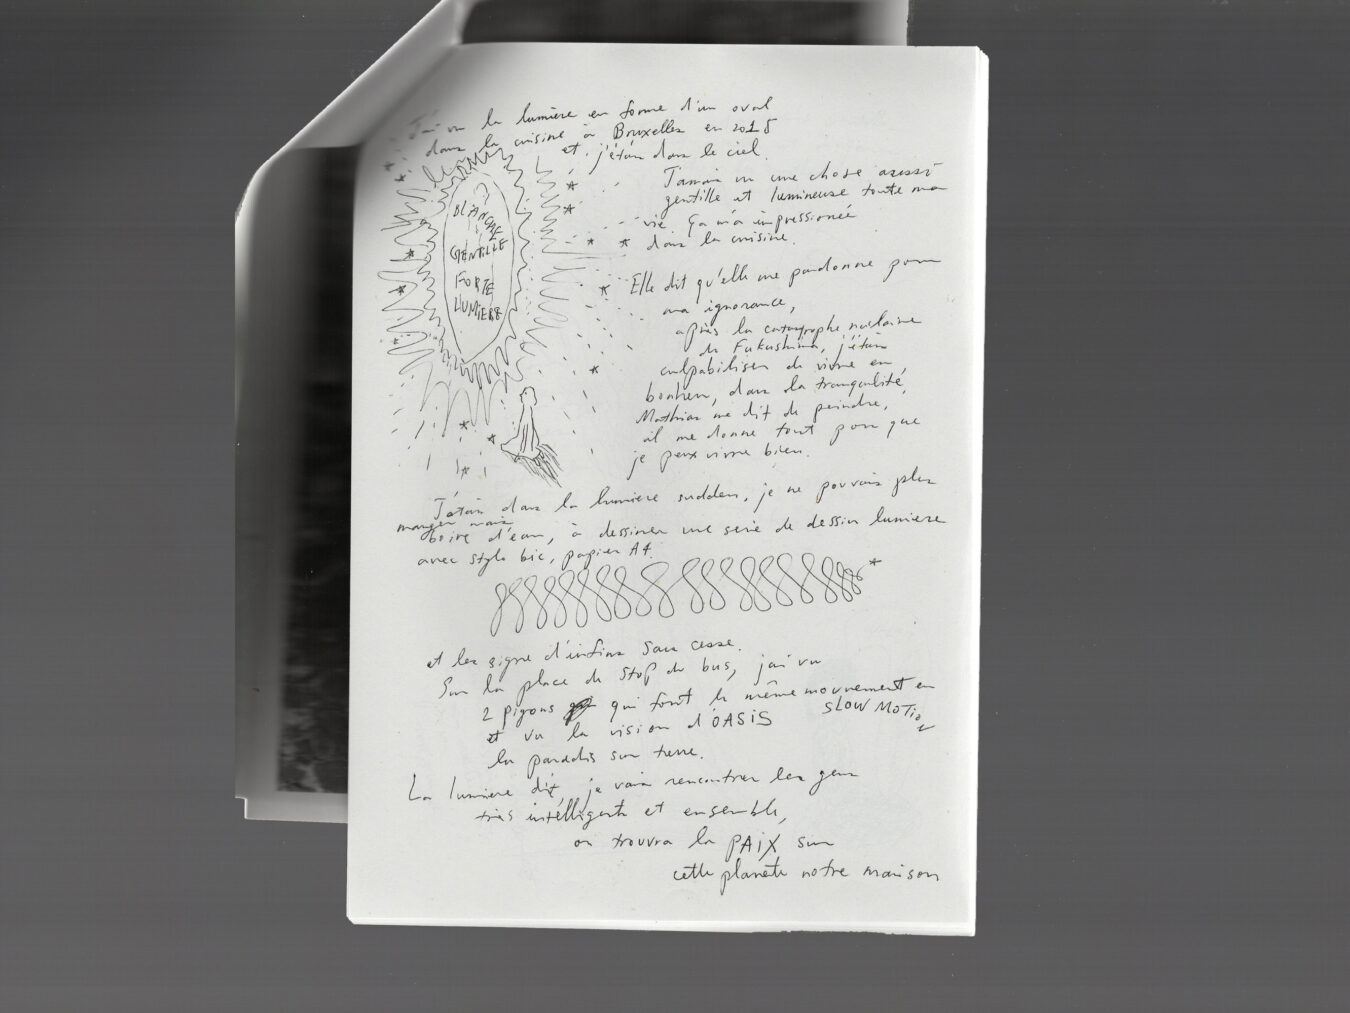 J'ai vu la lumière en forme d'un oval
dans la cuisine à Bruxelles en 2018
et j'étais dans le ciel.
Jamais vu une chose aussi
gentille et lumineuse toute ma
vie. ça m'a impressionée
dans la cuisine.
BLANCHE
GENTILLE
FORTE
LUMIERE
Elle dit qu'elle me pardonne pour
ma ignorance,
après la catastrophe nucléaire
de Fukushima, j'étais
culpabiliser de vivre en
bonheur, dans la tranquilité,
Mathias me dit de peindre,
il me donne tout pour que
je peux vivre bien.
J'étais dans la lumière sudden, je ne pouvais plus
manger mais
boire d'eau, à dessiner une serie de dessin lumiere
avec stylo bic, papier A4.
et les signe d'infini sans cesse.
Sur la place de Stop de bus, j'ai vu
2 pigons qui font le même mouvement en
SLOW MOTION
et vu la vision d'OASIS
la paradis sur terre.
La lumiere dit, je vais rencontrer les gens
très intélligents et ensemble,
on trouvra la PAIX sur
cette planète notre maison